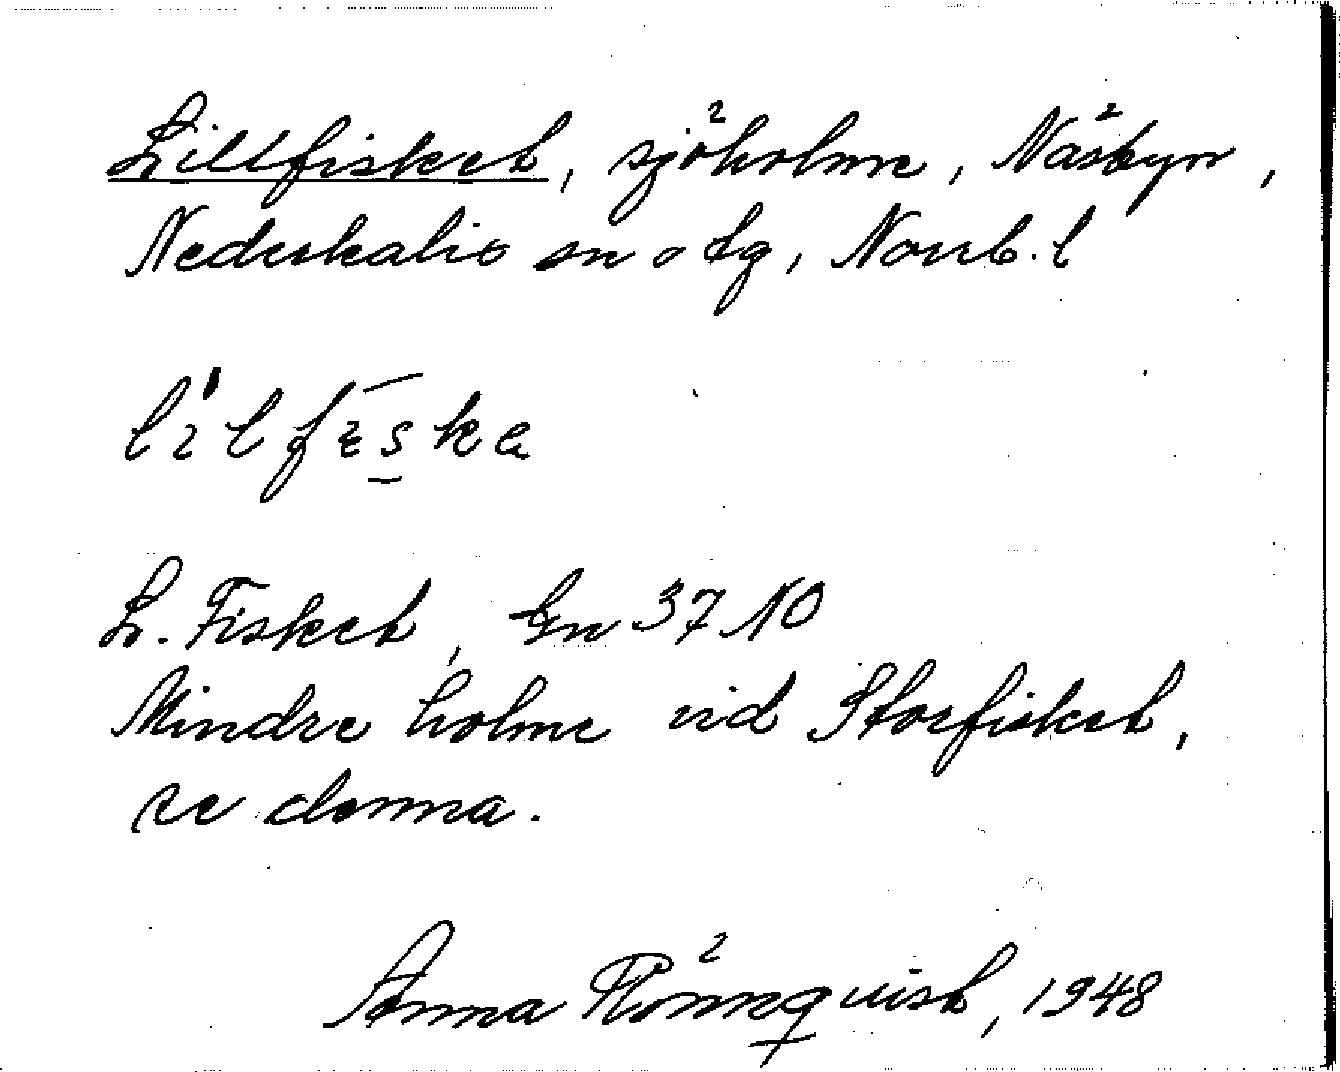 Lillfisket, sjöholme, Näsbyn,
Nederkalix sn o tg, Norrb. l
L. Fisket, Gn 37 NO
Mindre holme vid Storfisket,
se denna.
Anna Rönnqvist, 1948